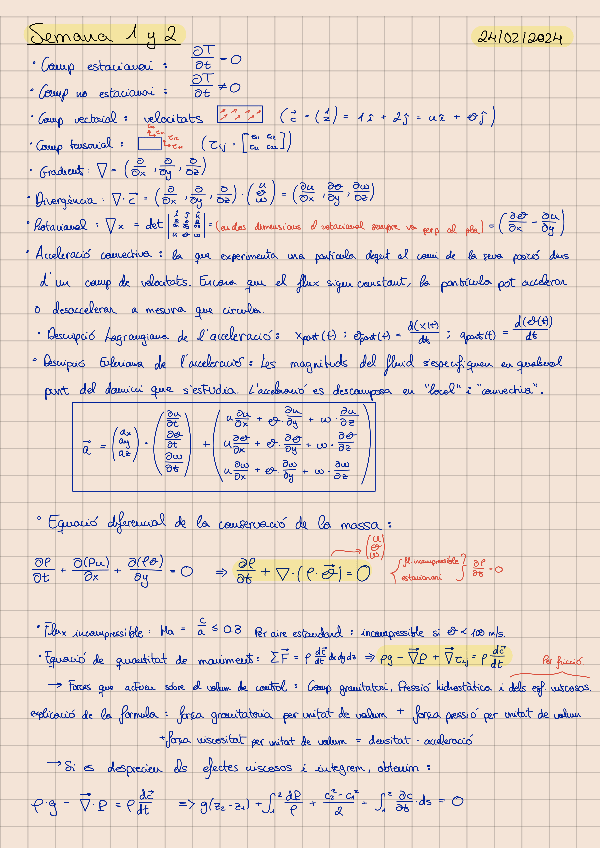 Semana 1 y 2
24/02/2024
· Camp estacionari : ∂T/∂t = 0
· Camp no estacionari : ∂T/∂t ≠ 0
· Camp vectorial : velocitats ( c⃗ = (1 2) = 1î + 2ĵ = uî + vĵ )
· Camp tensorial : ( τij = [ ] )
· Gradient : ∇ = ( ∂/∂x , ∂/∂y , ∂/∂z )
· Divergència : ∇ · c⃗ = ( ∂/∂x , ∂/∂y , ∂/∂z ) · ( u v w ) = ( ∂u/∂x , ∂v/∂y , ∂w/∂z )
· Rotacional : ∇x = det | | = (en dos dimensions el rotacional sempre va perp al pla) = ( ∂v/∂x - ∂u/∂y )
· Acceleració convectiva : la que experimenta una partícula degut al canvi de la seva posició dins
d'un camp de velocitats. Encara que el flux sigui constant, la partícula pot accelerar
o desaccelerar a mesura que circula.
· Descripció Lagrangiana de l'acceleració : xpart(t) ; vpart(t) = d(x(t))/dt ; apart(t) = d(v(t))/dt
· Descripció Euleriana de l'acceleració : Les magnituds del fluid s'especifiquen en qualsevol
punt del domini que s'estudia. L'acceleració es descomposa en "local" i "convectiva".
a⃗ = ( ax ay az ) = ( ∂u/∂t ∂v/∂t ∂w/∂t ) + ( u ∂u/∂x + v · ∂u/∂y + w · ∂u/∂z
u ∂v/∂x + v · ∂v/∂y + w · ∂v/∂z
u ∂w/∂x + v · ∂w/∂y + w · ∂w/∂z )
· Equació diferencial de la conservació de la massa :
( u v w )
∂ρ/∂t + ∂(ρu)/∂x + ∂(ρv)/∂y = 0 ⇒ ∂ρ/∂t + ∇·(ρ·v⃗) = 0 { fl. incompressible? estacionari } ∂ρ/∂t = 0
· Flux incompressible : Ma = c/a ≤ 0.3 Per aire estandard : incompressible si v < 100 m/s.
· Equació de quantitat de moviment : ΣF⃗ = ρ dc⃗/dt dxdydz ⇒ ρg - ∇⃗P + ∇⃗τij = ρ dc⃗/dt
Per fricció
→ Forces que actuen sobre el volum de control : Camp gravitatori, Pressió hidrostàtica i dels esf. viscosos.
explicació de la formula : força gravitatoria per unitat de volum + força pressió per unitat de volum
+ força viscositat per unitat de volum = densitat · acceleració
→ Si es desprecien els efectes viscosos i integrem, obtenim :
ρ·g - ∇⃗·P = ρ dc⃗/dt ⇒ g(z2 - z1) + ∫₁² dP/ρ + (c2² - c1²)/2 + ∫₁² ∂c/∂t · ds = 0